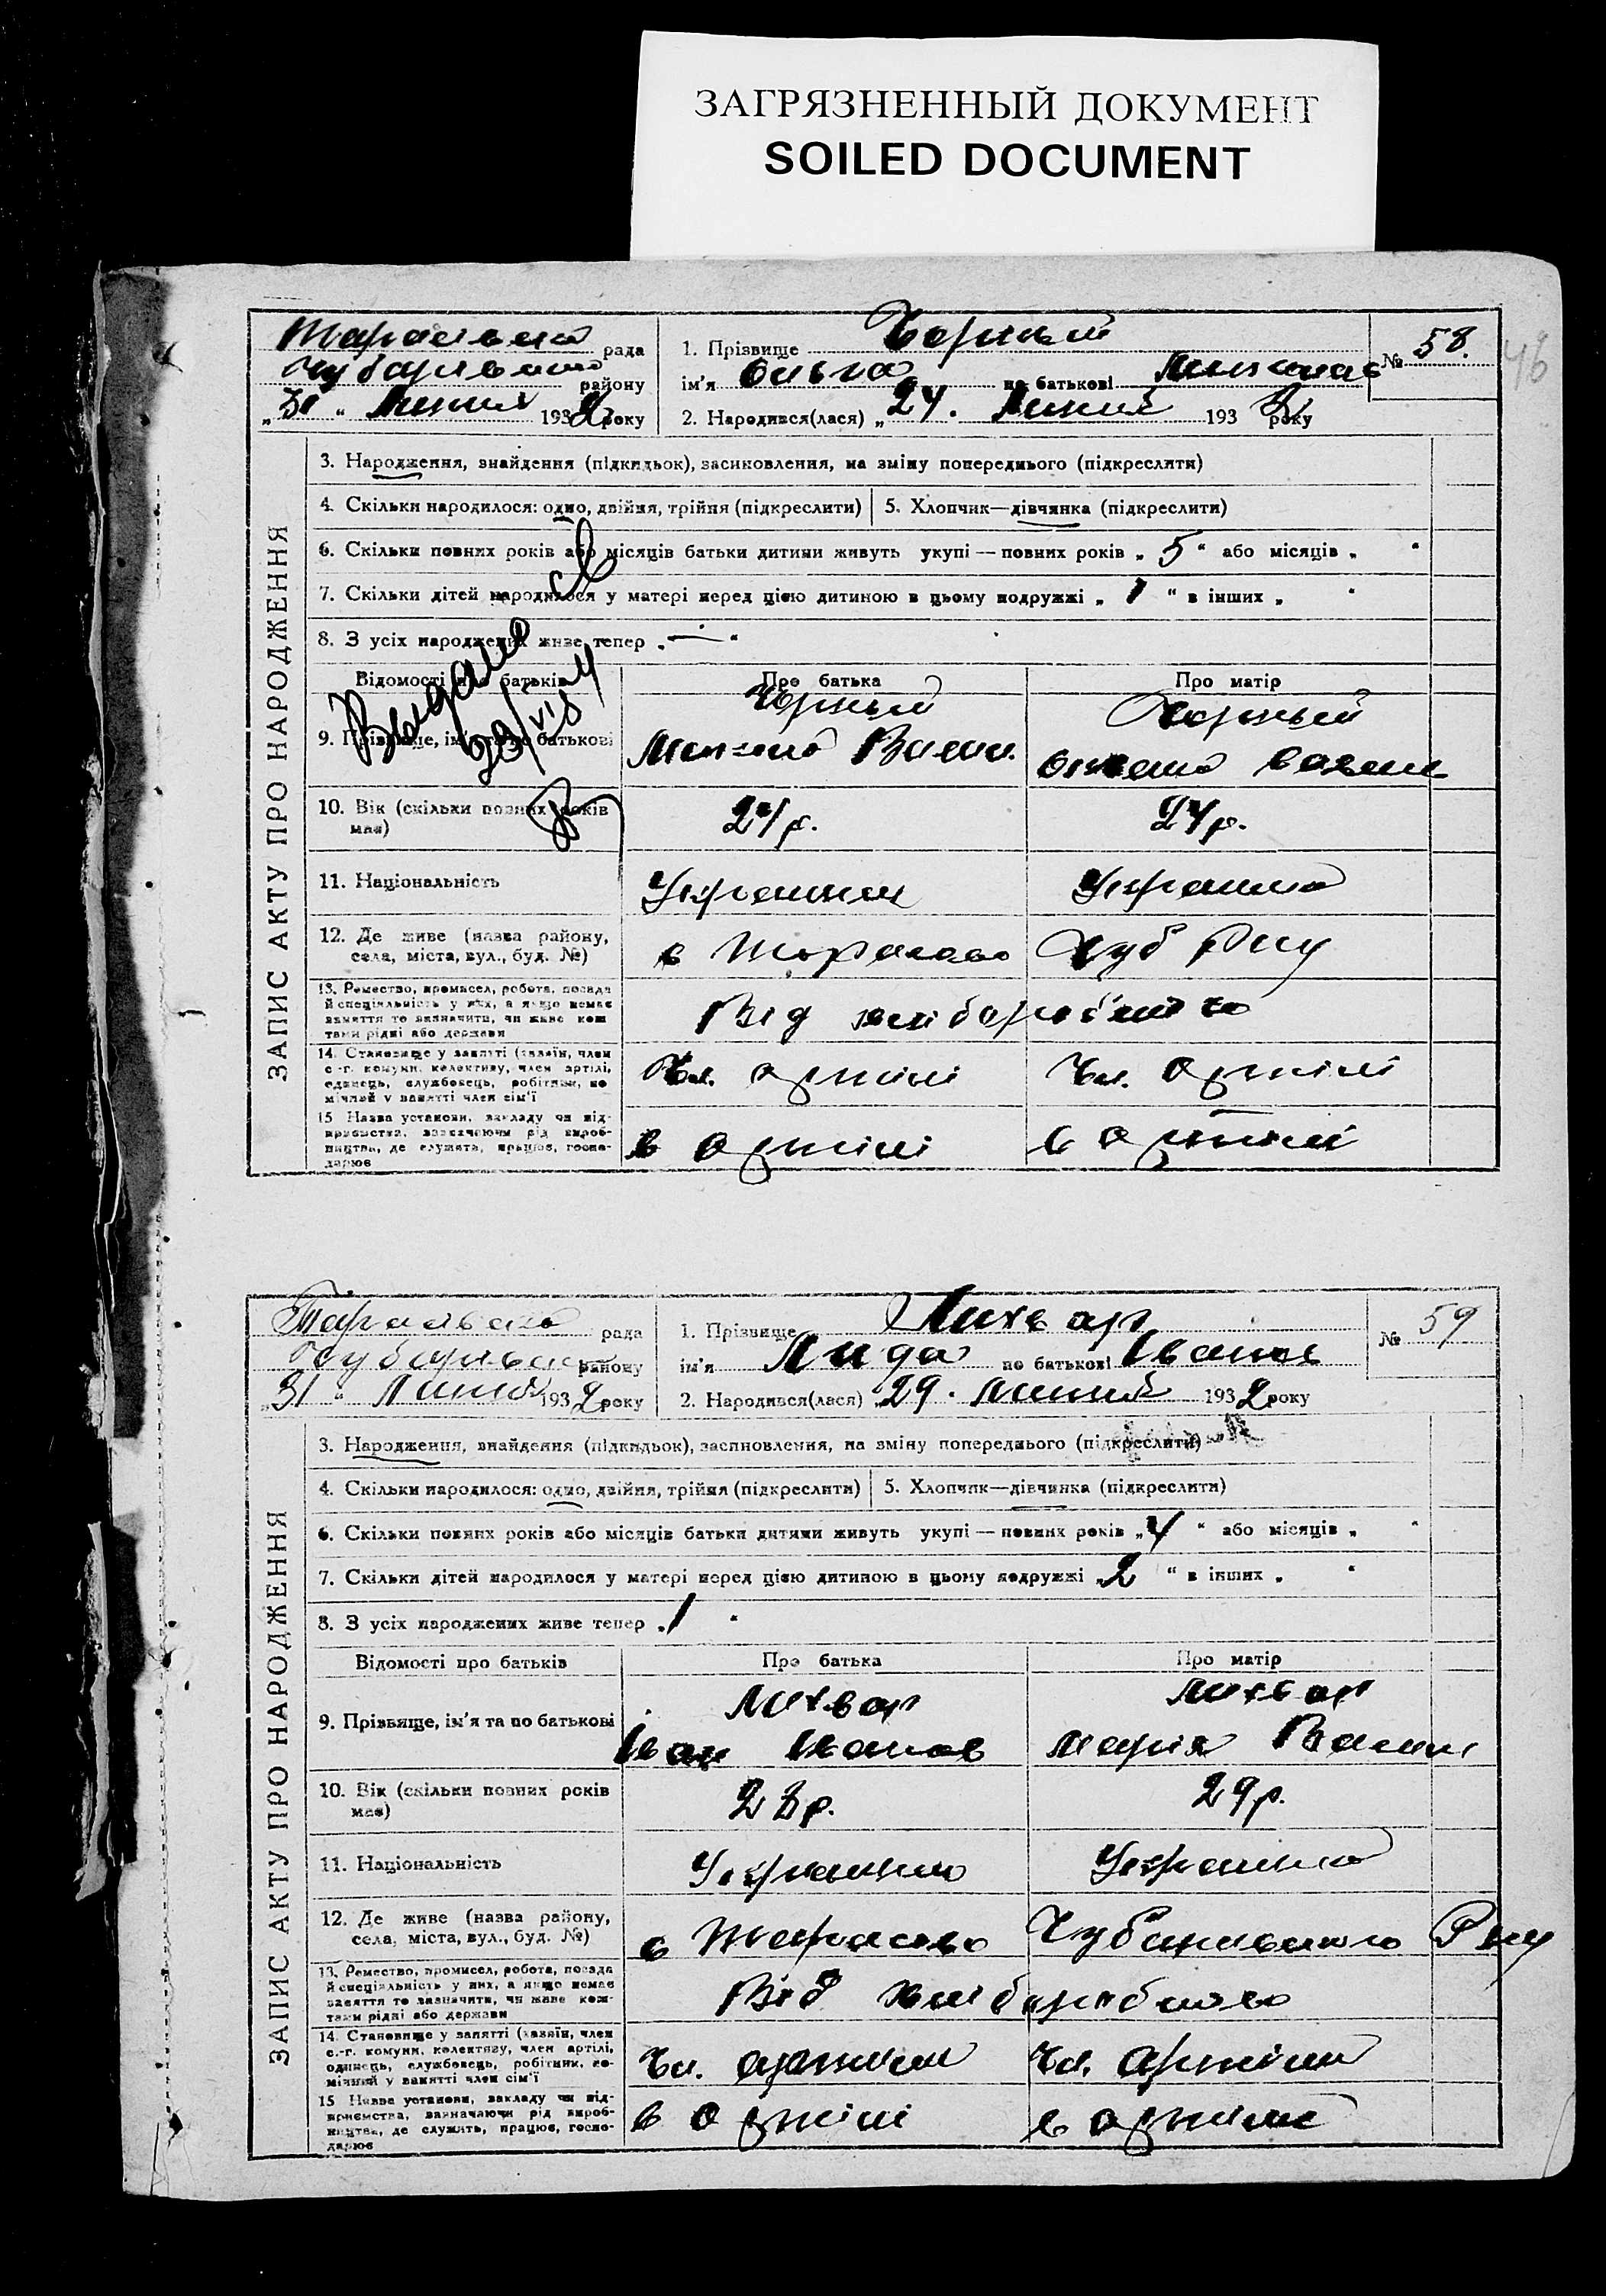 ЗАГРЯЗНЕННЫЙ ДОКУМЕНТ
SOILED DOCUMENT
рада
району
„31“ Липня 1932 року
1. Прізвище Чорный
ім'я Ольга по батькові
2. Народився(лася) „24. Липня 193 року
№ 58.
46
ЗАПИС АКТУ ПРО НАРОДЖЕННЯ
3. Народження, знайдення (підкидьок), засиновлення, на зміну попереднього (підкреслити)
4. Скільки народилося: одно, двійня, трійня (підкреслити)
5. Хлопчик—дівчинка (підкреслити)
6. Скільки повних років або місяців батьки дитини живуть укупі — повних років „ 5 “ або місяців „ “
7. Скільки дітей народилося у матері перед цією дитиною в цьому подружжі „ 1 “ в інших „ “
8. З усіх народжених живе тепер „ — “
Відомості про батьків
Про батька
Про матір
9. Прізвище, ім'я та по батькові
Чорный
Чорный
10. Вік (скільки повних років має)
24 р.
11. Національність
12. Де живе (назва району, села, міста, вул., буд. №)
в Тарасівко Чуб Рну
13. Ремество, промисел, робота, посада й спеціяльність у них, а якщо немає заняття то зазначити, чи живе коштами рідні або держави
Від хліборобства
14. Становище у занятті (хазяїн, член с.-г. комуни, колективу, член артілі, одинець, службовець, робітник, помічний у занятті член сім'ї
Чл. артілі
Чл. артілі
15 Назва установи, закладу чи підприємства, зазначаючи рід виробництва, де служить, працює, господарює
в артілі
в артілі
рада
району
31 “ Липня 1932 року
1. Прізвище Лихвар
ім'я Лида по батькові Іванов
2. Народився(лася) „29. Липня 1932 року
№ 59
ЗАПИС АКТУ ПРО НАРОДЖЕННЯ
3. Народження, знайдення (підкидьок), засиновлення, на зміну попереднього (підкреслити)
4. Скільки народилося: одно, двійня, трійня (підкреслити)
5. Хлопчик—дівчинка (підкреслити)
6. Скільки повних років або місяців батьки дитини живуть укупі — повних років „ 4 “ або місяців „ “
7. Скільки дітей народилося у матері перед цією дитиною в цьому подружжі „ 2 “ в інших „ “
8. З усіх народжених живе тепер „ 1 “
Відомості про батьків
Про батька
Про матір
9. Прізвище, ім'я та по батькові
Лихвар
Іван Іванов
Лихвар
Мария
10. Вік (скільки повних років має)
28 р.
29 р.
11. Національність
12. Де живе (назва району, села, міста, вул., буд. №)
в Тарасівко Рну
13. Ремество, промисел, робота, посада й спеціяльність у них, а якщо немає заняття то зазначити, чи живе коштами рідні або держави
Від хліборобства
14. Становище у занятті (хазяїн, член с.-г. комуни, колективу, член артілі, одинець, службовець, робітник, помічний у занятті член сім'ї
Чл. артіли
Чл. артіли
15 Назва установи, закладу чи підприємства, зазначаючи рід виробництва, де служить, працює, господарює
в артілі
в артілі